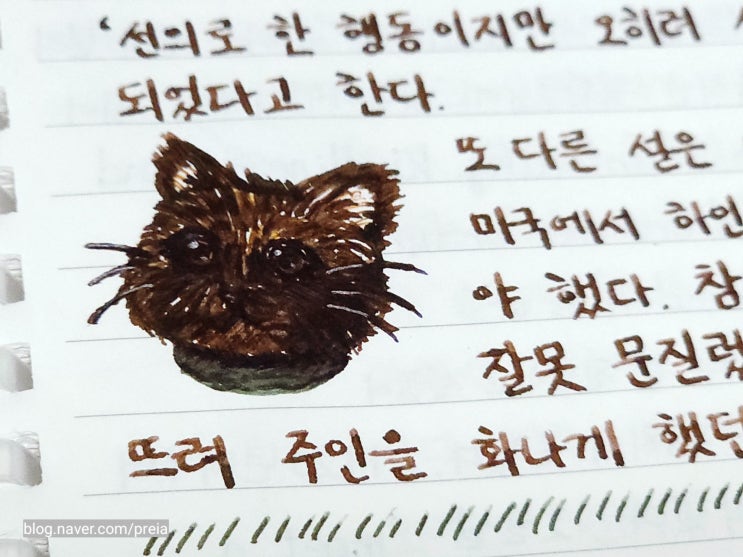 ‘선의로 한 행동이지만 오히려
되었다고 한다.
또 다른 설은
미국에서 하인
야 했다. 참
잘못 문질렀
뜨려 주인을 화나게 했던
blog.naver.com/preia